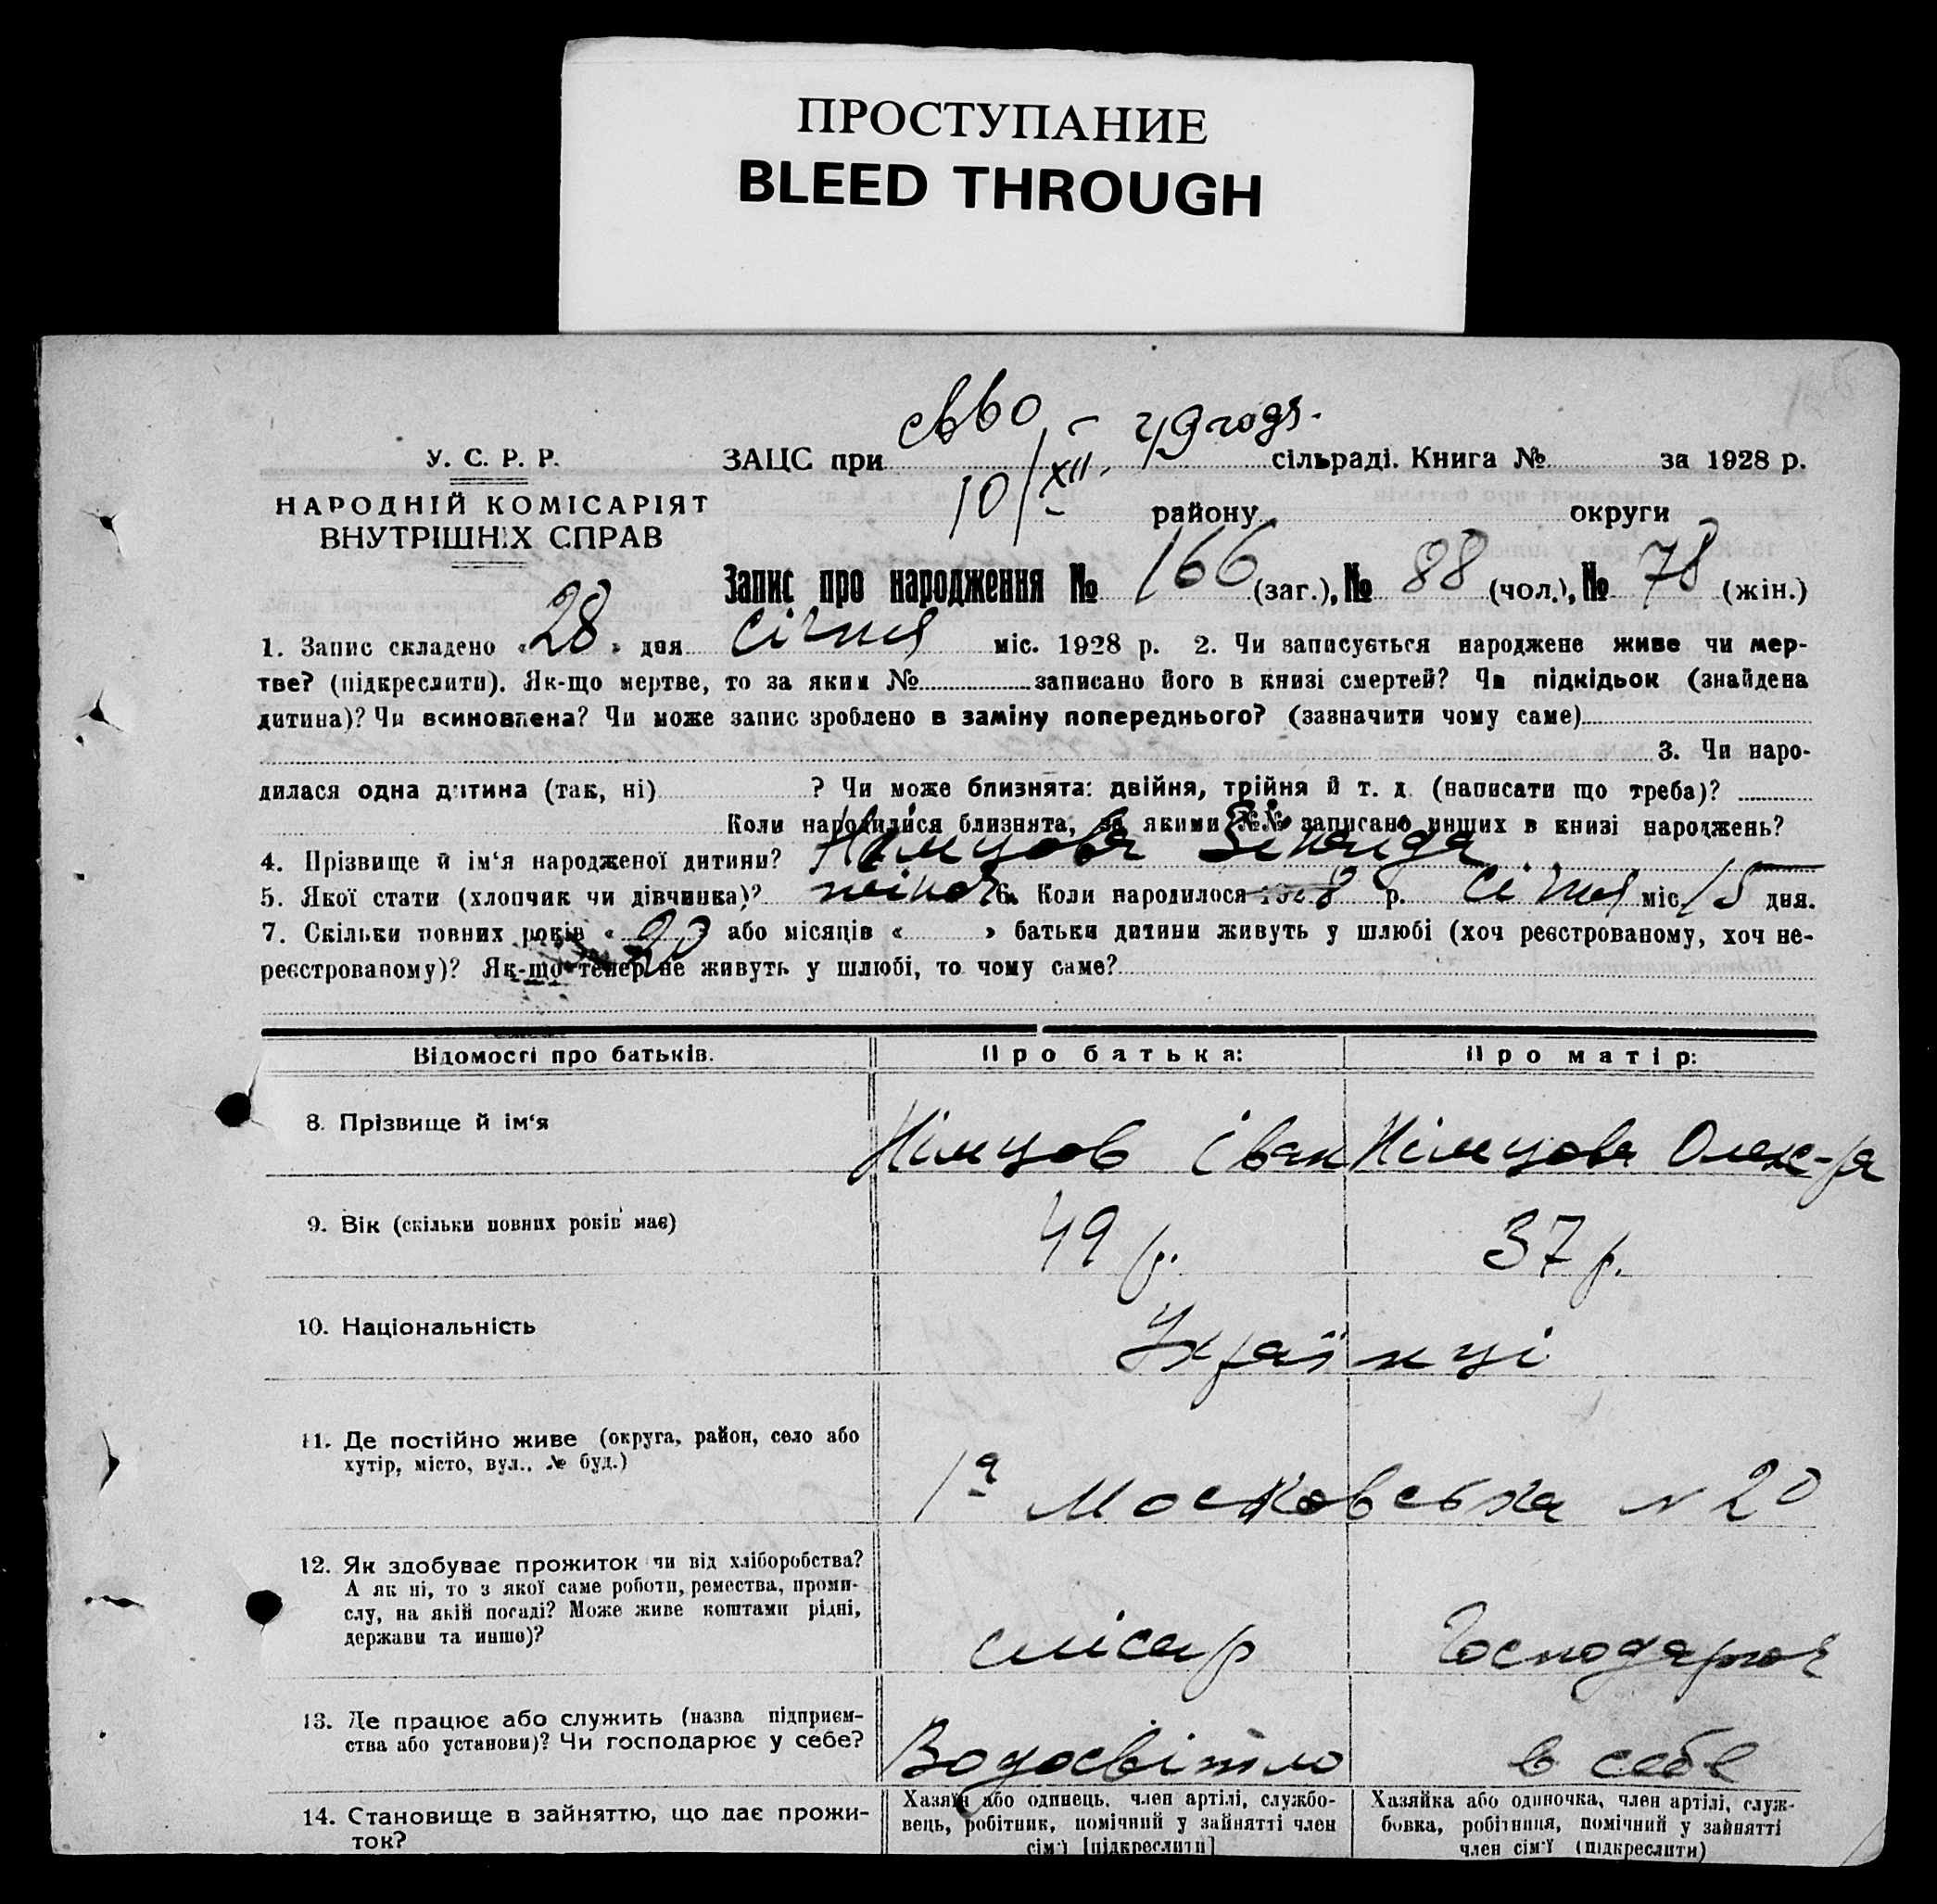 ПРОСТУПАНИЕ
BLEED THROUGH
У. С. Р. Р.
НАРОДНІЙ КОМІСАРІЯТ
ВНУТРІШНІХ СПРАВ
ЗАЦС при сільраді. Книга № за 1928 р.
10/XII району округи
Запис про народження № 166 (заг.), № 88 (чол.), № 78 (жін.)
1. Запис складено «28» дня січня міс. 1928 р. 2. Чи записується народжене живе чи мер-
тве? (підкреслити). Як-що мертве, то за яким № записано його в книзі смертей? Чи підкідьок (знайдена
дитина)? Чи всиновлена? Чи може запис зроблено в заміну попереднього? (зазначити чому саме)
3. Чи наро-
дилася одна дитина (так, ні) ? Чи може близнята: двійня, трійня й т. д. (написати що треба)?
Коли народилися близнята, за якими №№ записано инших в книзі народжень?
4. Прізвище й ім‘я народженої дитини? Німцова Зінаида
5. Якої стати (хлопчик чи дівчинка)? жіноч. 6. Коли народилося 1928 р. січня міс. 15 дня.
7. Скільки повних років «20» або місяців « » батьки дитини живуть у шлюбі (хоч реєстрованому, хоч не-
реєстрованому)? Як-що тепер не живуть у шлюбі, то чому саме?
Відомості про батьків. Про батька: Про матір:
8. Прізвище й ім‘я Німцов Іван Німцова Олек-ра
9. Вік (скільки повних років має) 49 р. 37 р.
10. Національність Українці
11. Де постійно живе (округа, район, село або
хутір, місто, вул., № буд.) 1а Московська N 20
12. Як здобуває прожиток чи від хліборобства?
А як ні, то з якої саме роботи, ремества, проми-
слу, на якій посаді? Може живе коштами рідні,
держави та инше)? слісар Господарює
13. Де працює або служить (назва підприєм-
ства або установи)? Чи господарює у себе? Водосвітло в себе
14. Становище в зайняттю, що дає прожи-
ток?
Хазяїн або одинець, член артілі, службо-
вець, робітник, помічний у зайнятті член
сім‘ї [підкреслити]
Хазяйка або одиночка, член артілі, служ-
бовка, робітниця, помічний у зайнятті
член сім‘ї (підкреслити)